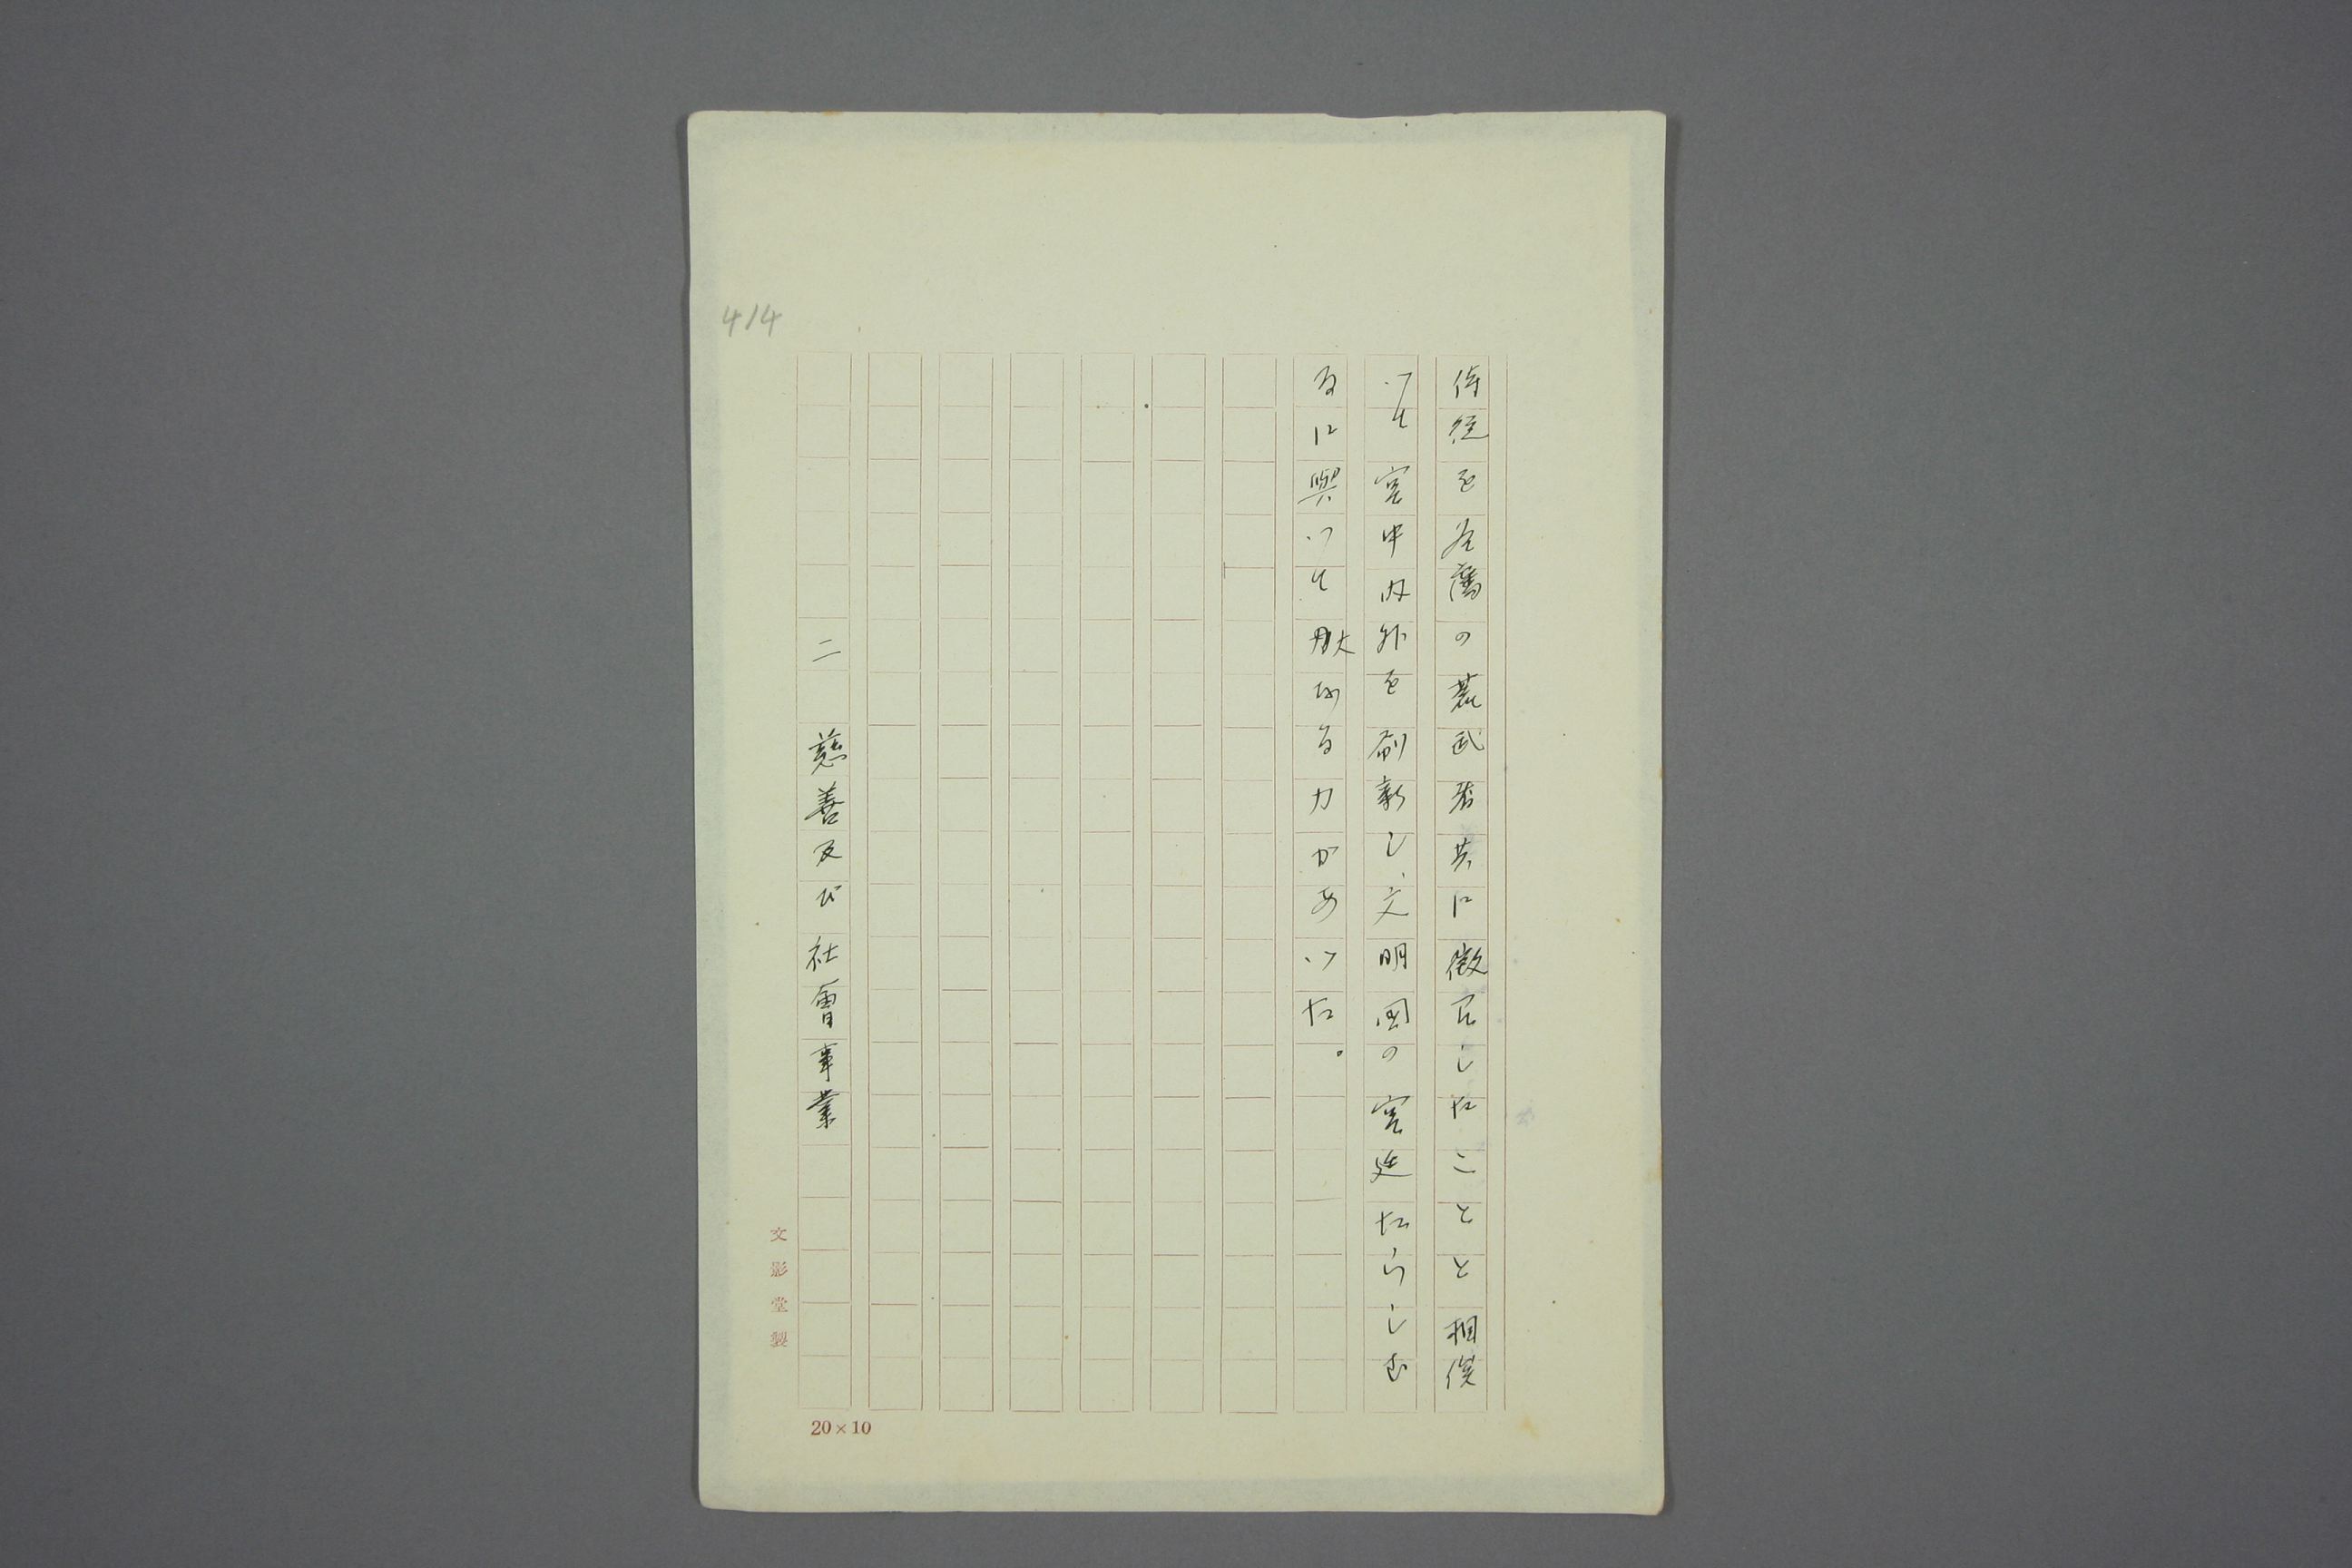 侍從を各藩の荒武者共に徵召したことと相俟
つて宮中內外を刷新し、文明國の宮廷たらしむ
るに與つて大なる力があつた。
二 慈善及び社會事業
414
文影堂製
20×10